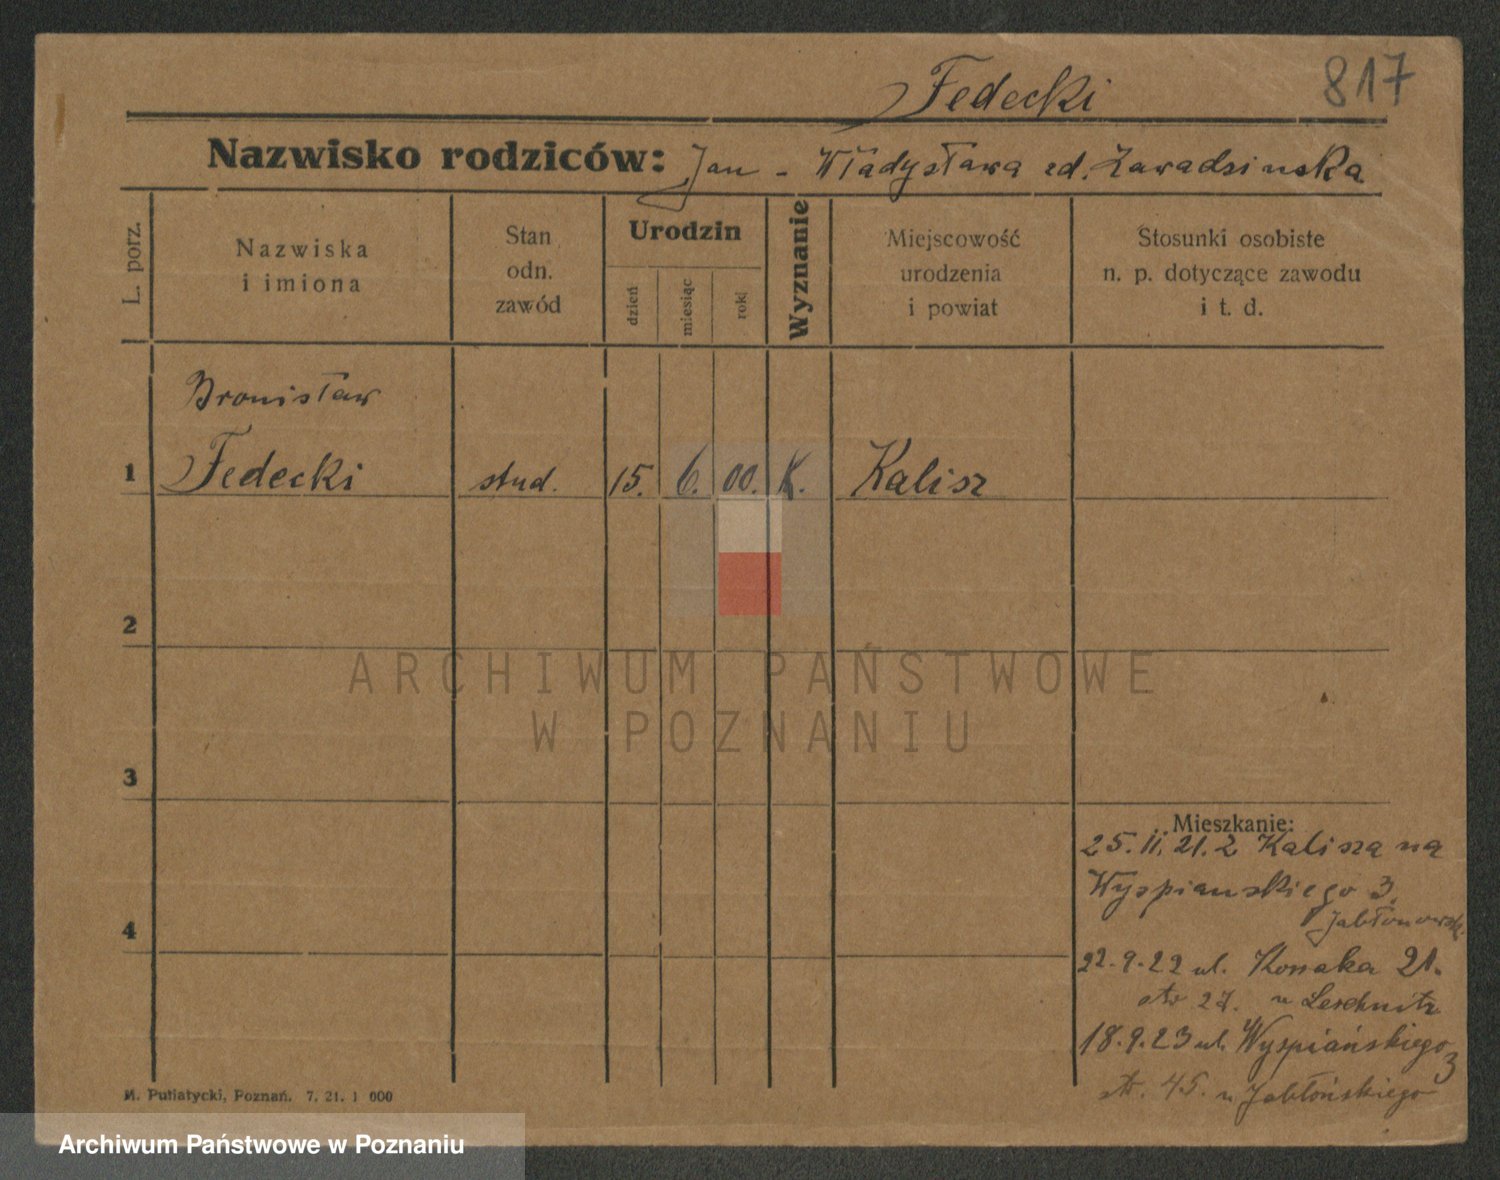 Fedecki 817
Nazwisko rodziców: Jan - Władysława zd. Zawadsinska
L. porz.
Nazwiska
i imiona
Stan
odn.
zawód
Urodzin
dzień
miesiąc
rok
Wyznanie
Miejscowość
urodzenia
i powiat
Stosunki osobiste
n. p. dotyczące zawodu
i t. d.
Bronisław
1 Fedecki stud. 15. 6. 00. K. Kalisz
2
ARCHIWUM PAŃSTWOWE
W POZNANIU
3
Mieszkanie:
25. II. 21. z Kalisza na
Wyspianskiego 3.
4
22.9.22 ul. Kossaka 21.
str 27. u Leschnitz
18.9.23 ul. Wyspiańskiego
3
str. 45. u Jabłońskiego
M. Putiatycki, Poznań. 7. 21. 1 000
Archiwum Państwowe w Poznaniu